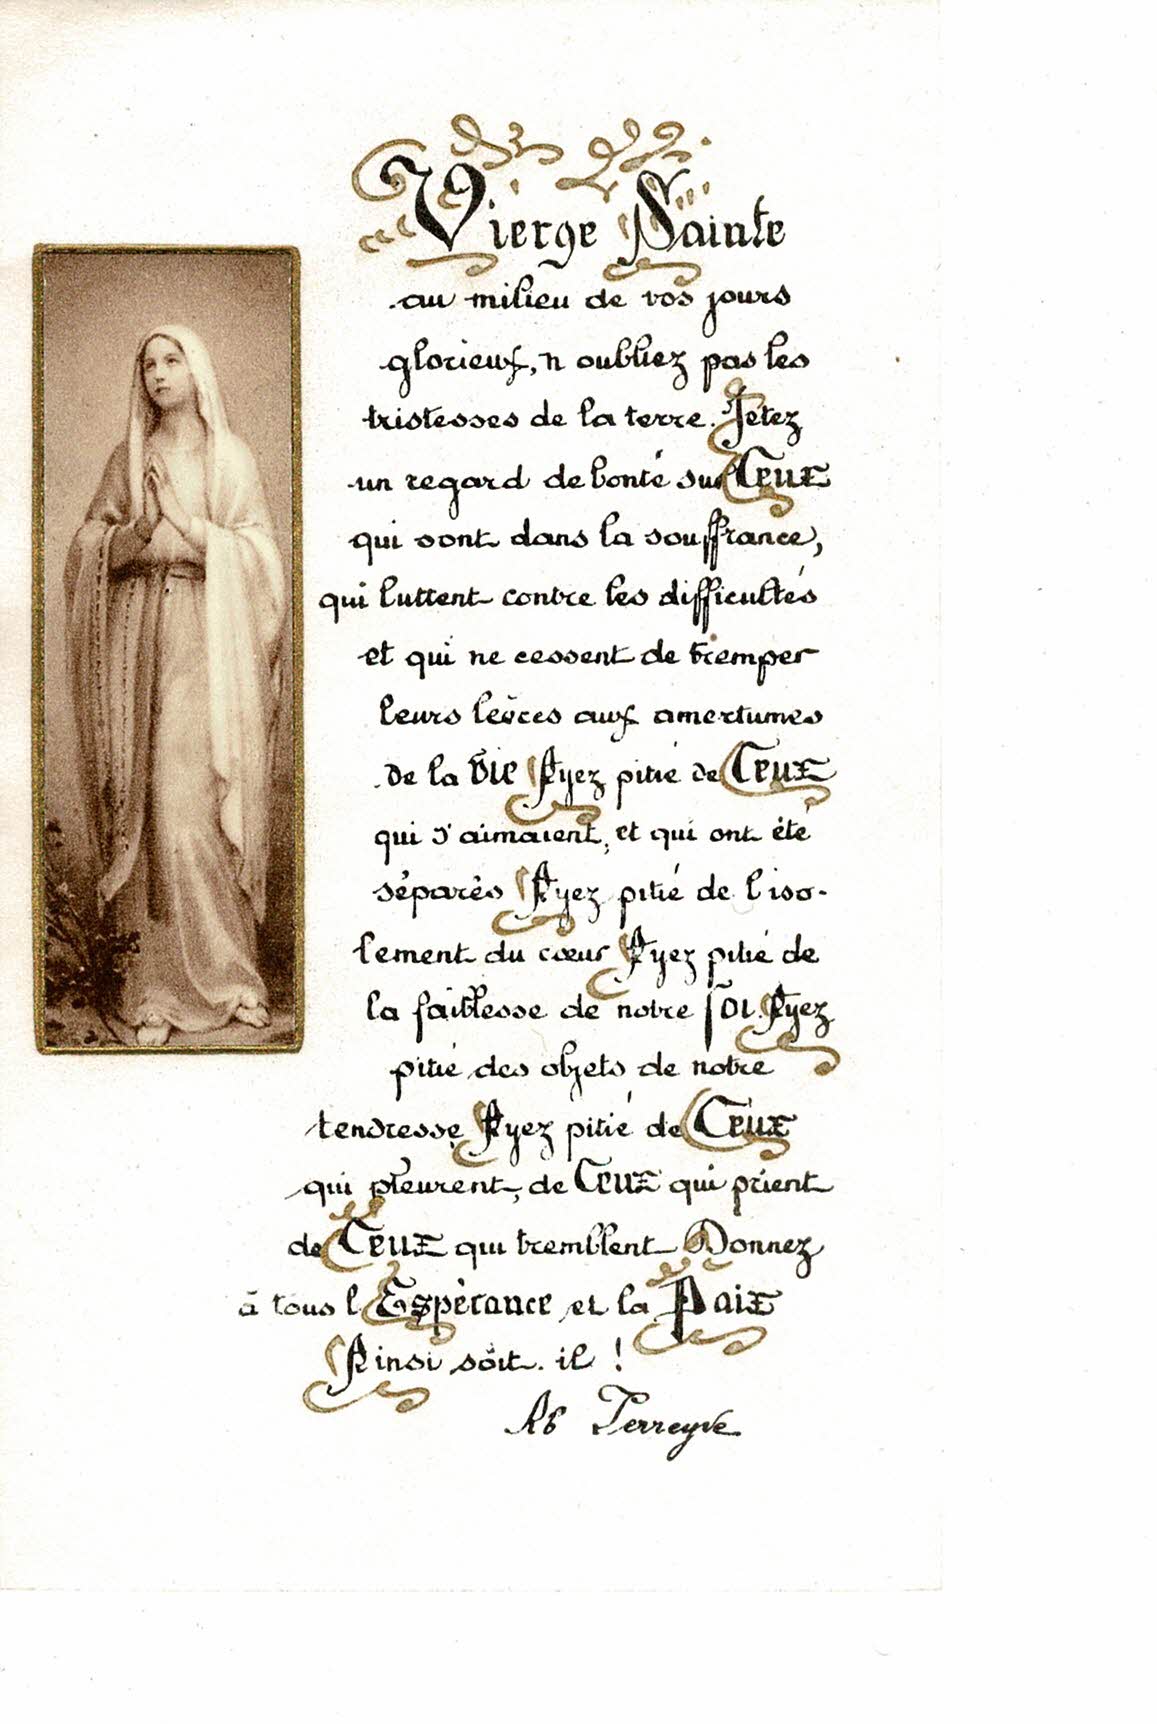 Vierge Sainte
au milieu de vos jours
glorieux, n oubliez pas les
tristesses de la terre. Jetez
un regard de bonté sur Ceux
qui sont dans la souffrance,
qui luttent contre les difficultés
et qui ne cessent de tremper
leurs lèvres aux amertumes
de la vie Ayez pitié de Ceux
qui s'aimaient, et qui ont été
séparés Ayez pitié de l iso-
lement du cœur Ayez pitié de
la faiblesse de notre foi. Ayez
pitié des objets de notre
tendresse Ayez pitié de Ceux
qui pleurent, de Ceux qui prient
de Ceux qui tremblent Donnez
à tous l Espérance et la Paix
Ainsi soit. il !
Ab Perreyve